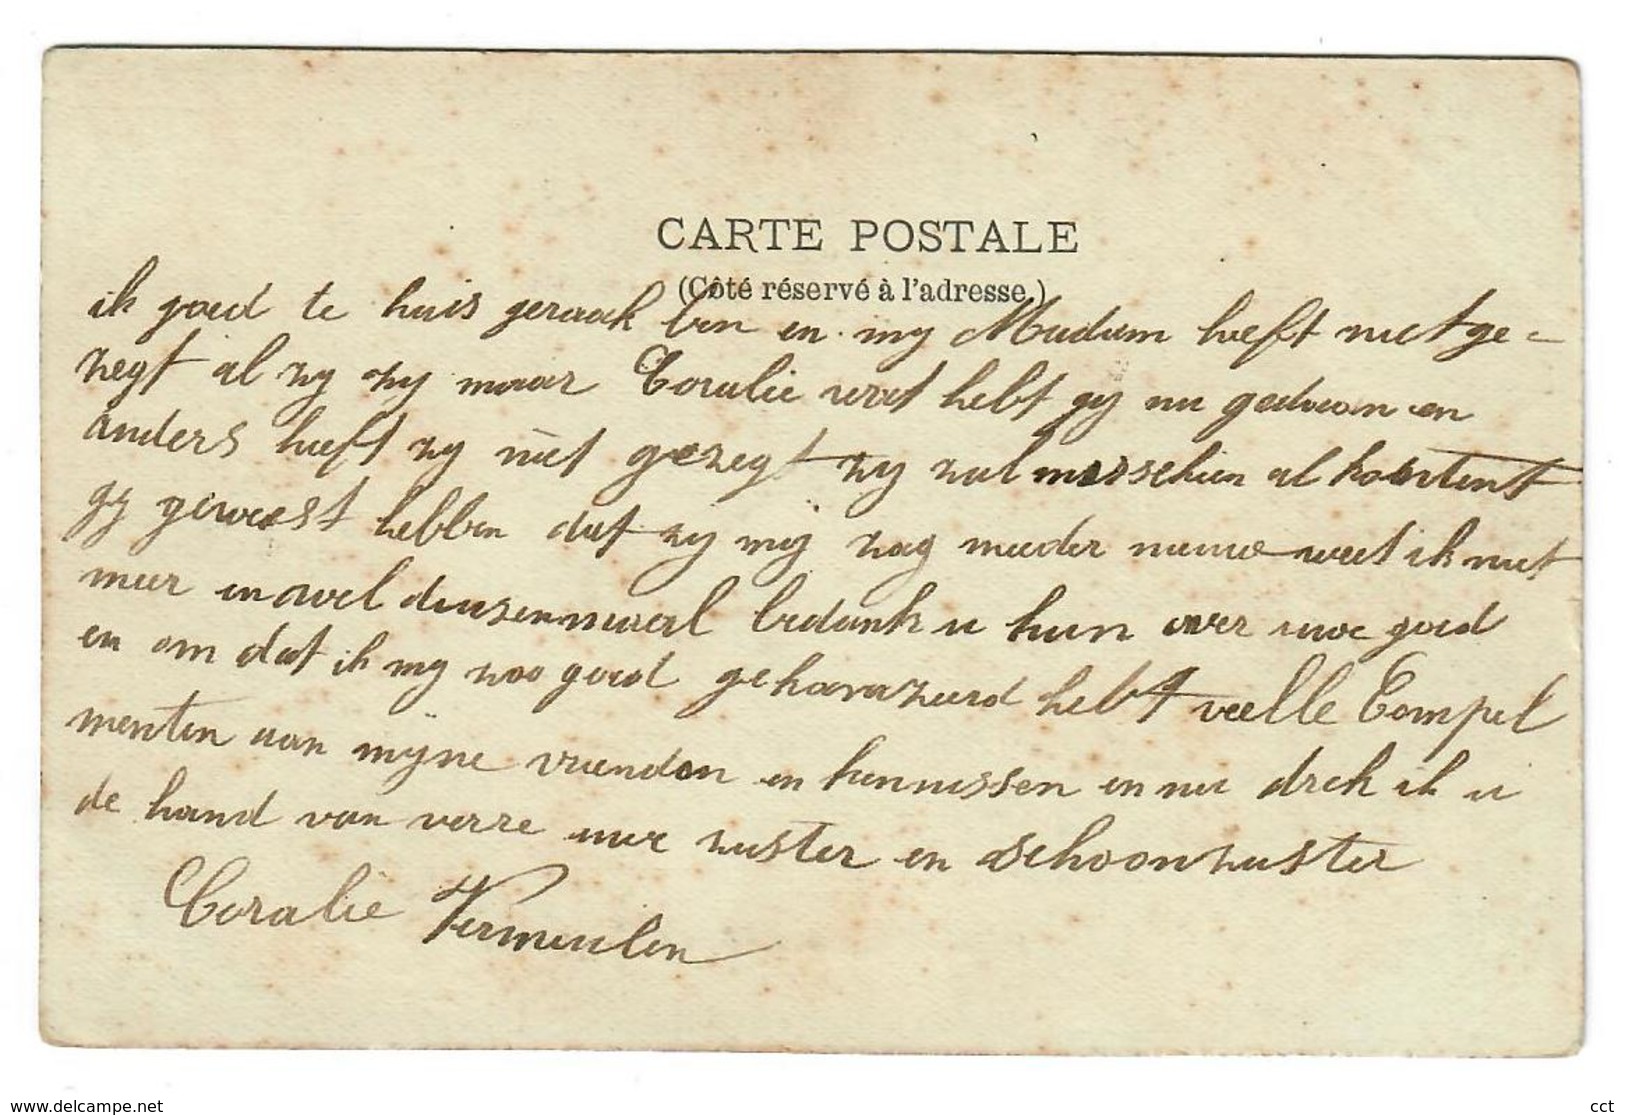 CARTE POSTALE
(Côté réservé à l'adresse.)
ik goed te huis geraak ben en my Madam heeft niet ge-
zegt al zy zy maar Coralie wat hebt gy nu gedaan en
anders heeft zy niet gezegt zy zal misschien al kontent
gy geweest hebben dat zy mij zag meeder nieuw weet ik niet
meer en wel duizenmaal bedank u hun over uwe goed
en om dat ik my zoo goed geamuzeerd hebt veelle Compel
menten aan mijne vrienden en kennissen en nu drek ik u
de hand van verre uwe zuster en schoonzuster
Coralie Vermeulen
www.delcampe.net
cct